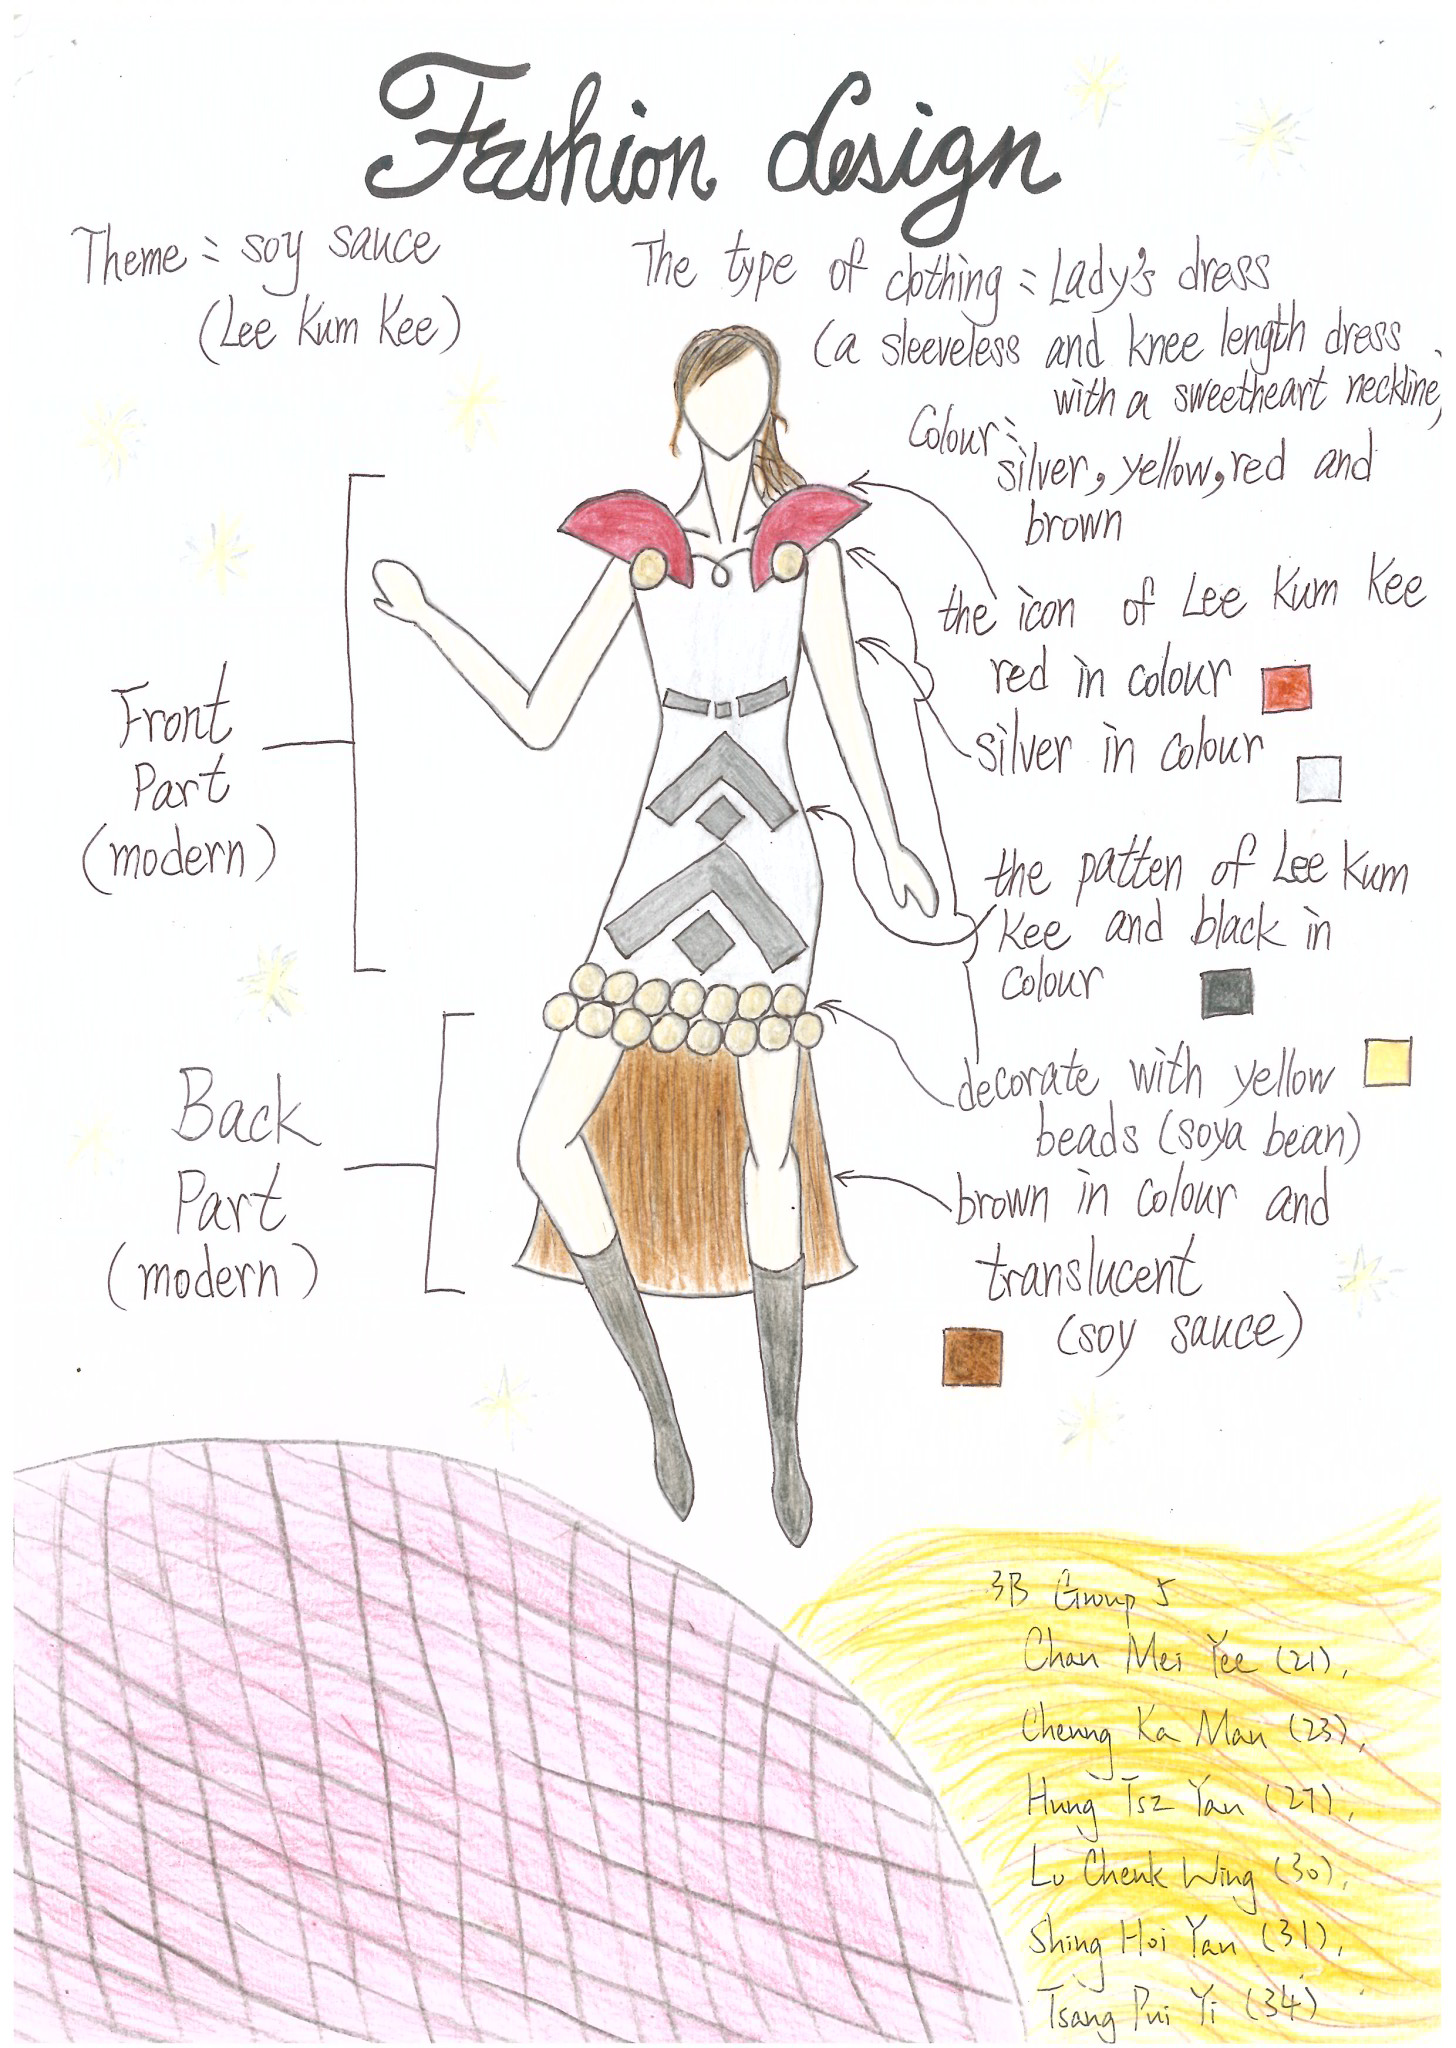 Fashion design
Theme : soy sauce
(Lee Kum Kee)
The type of clothing : Lady's dress
(a sleeveless and knee length dress
with a sweetheart neckline)
Colour :
silver, yellow, red and
brown
the icon of Lee Kum Kee
red in colour
silver in colour
the patten of Lee Kum
Kee and black in
colour
decorate with yellow
beads (soya bean)
brown in colour and
translucent
(soy sauce)
Front
Part
(modern)
Back
Part
(modern)
3B Group 5
Chan Mei Yee (21),
Cheung Ka Man (23),
Hung Tsz Yan (27),
Lu Wing (30),
Shing Hoi Yan (31),
Tsang Pui Yi (34)